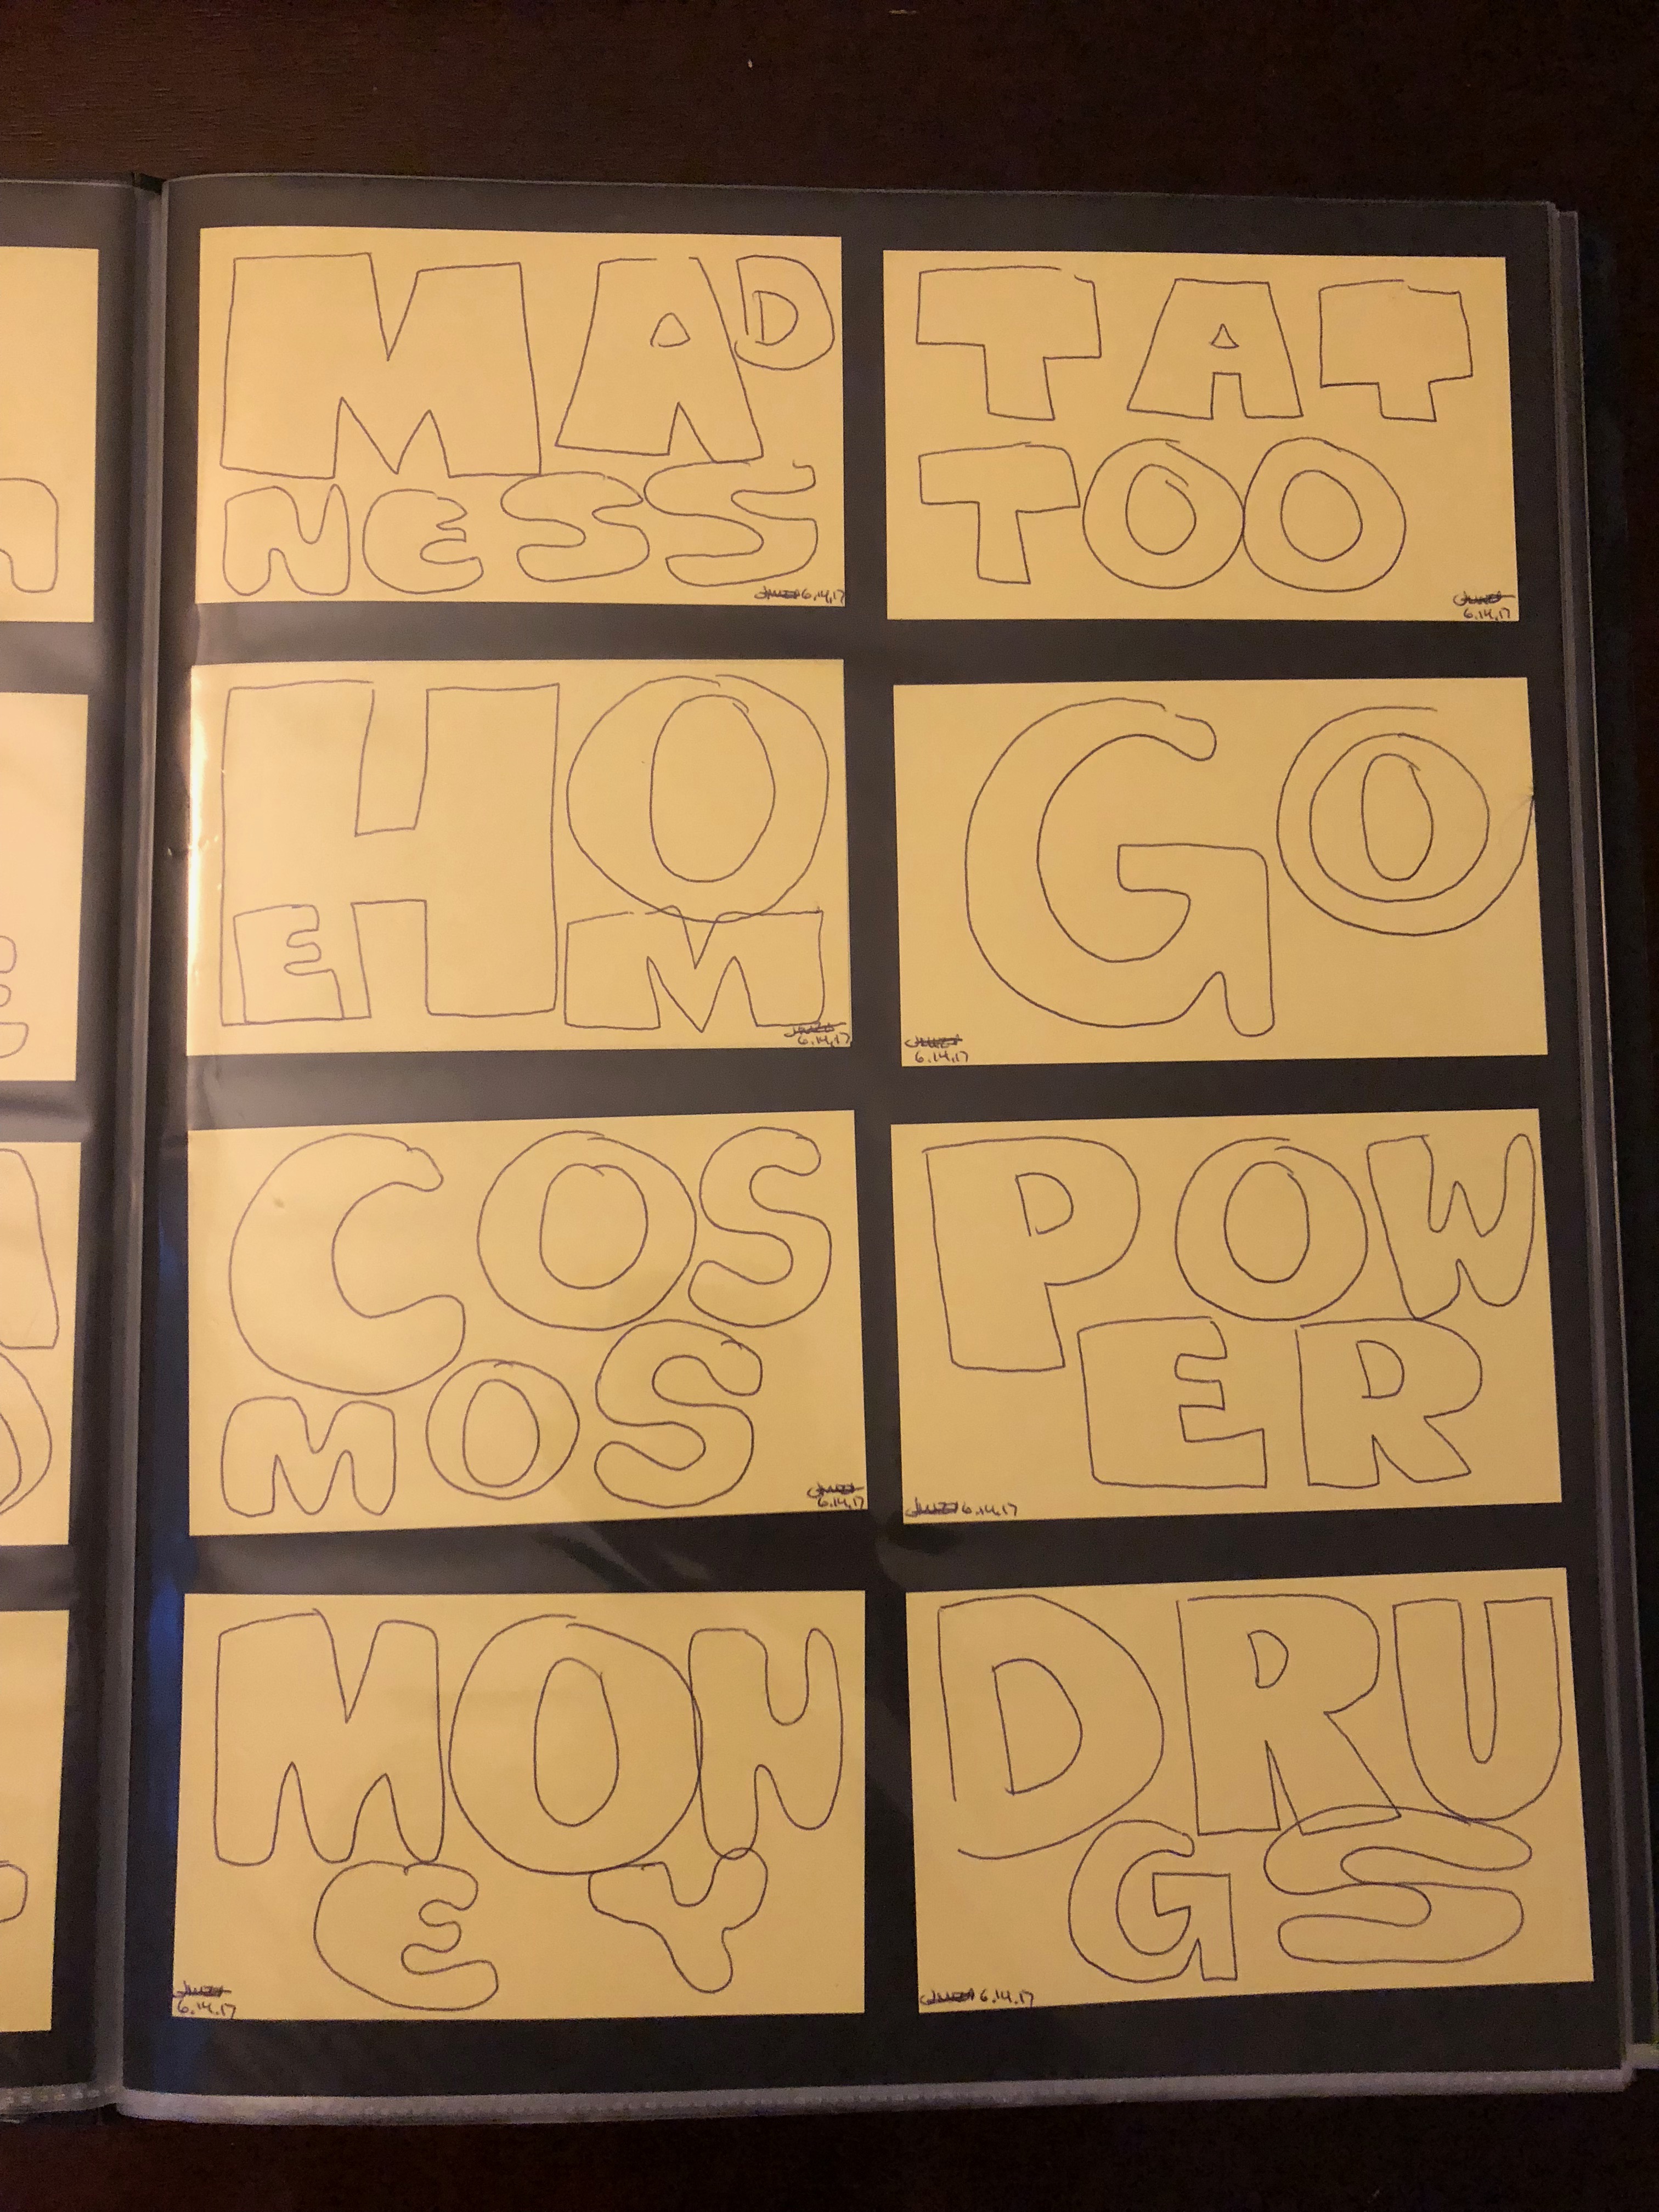 MAD
NESS
6.14.17
TAT
TOO
6.14.17
HO
EM
6.14.17
GO
6.14.17
COS
MOS
6.14.17
POW
ER
6.14.17
MON
EY
6.14.17
DRU
GS
6.14.17